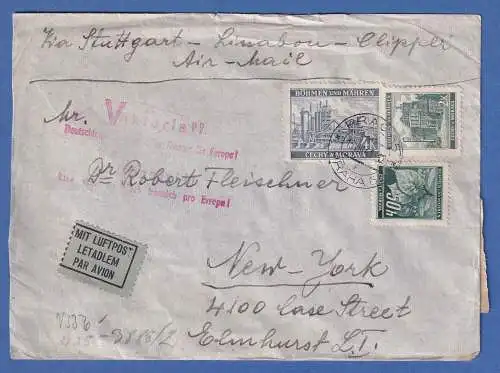 Via Stuttgart - Lissabon - Clipper
Air-Mail
BÖHMEN UND MÄHREN
4K
ČECHY A MORAVA
2K
40
PRAG
PRAHA
Mr.
Victoria
Deutschlands für Europa!
pro Evropu!
Dr Robert Fleischner
MIT LUFTPOST
LETADLEM
PAR AVION
New-York
4100 Case Street
Elmhurst L.I.